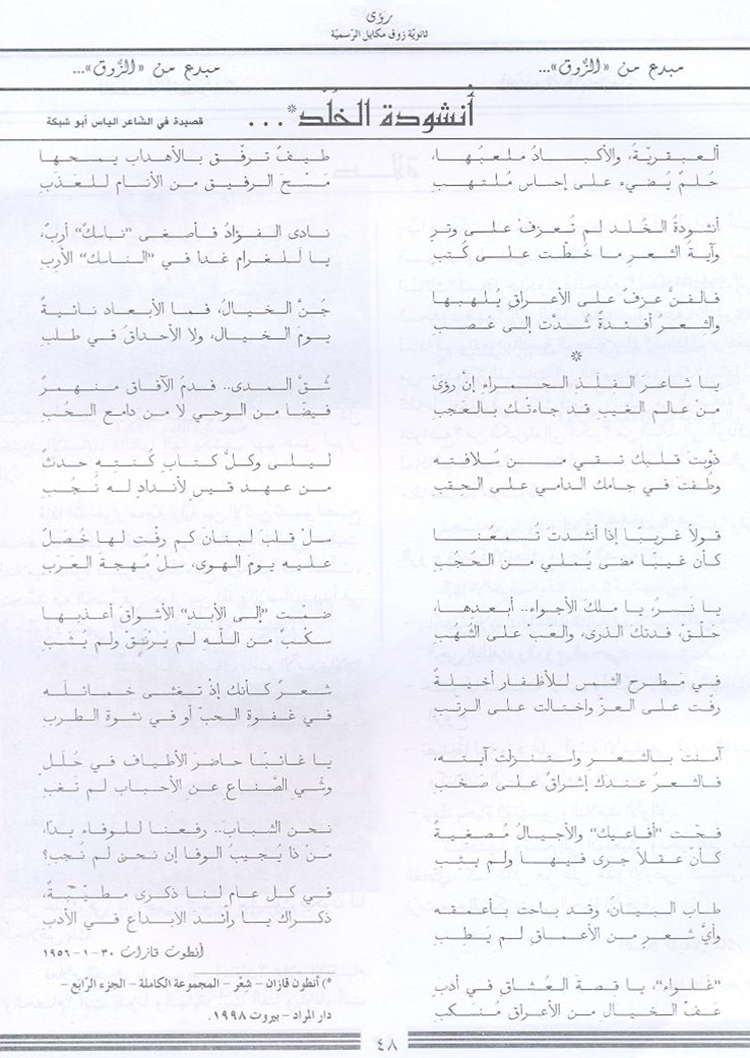 رؤى
ثانوية زوق مكايل الرّسميّة
مبدع من «الزّوق»...
مبدع من «الزّوق»...
أنشودة الخُلد*...
قصيدة في الشّاعر الياس أبو شبكة
العبقريّة، والأكبادُ ملعبُها،
حُلمٌ يُضيء على إحساس مُلتهب
أنشودةُ الخُلد لم تُعزفْ على وترٍ
وآيةُ الشعر ما خُطّت على كُتب
فالفنّ عزفٌ على الأعراق يُلهبها
والشعر أفئدةٌ شُدّت إلى عَصَب
*
يا شاعرَ الفلذ الحمراء إنّ رؤىً
من عالم الغيب قد جاءتك بالعَجَب
ذوّبتَ قلبك تسقي من سُلافته
وطُفتَ في جامك الدامي على الحِقَب
قولاً غريبًا إذا أنشدتَ تُسمعُنا
كأن غيبًا مضى يُملي من الحُجُب
يا نسرُ، يا ملكَ الأجواء.. أبعدها،
حلّقْ، فدتك الذرى، والعبْ على الشُهُب
في مطرح الشمس للأظفار أخيلةٌ
رفّت على العزّ واختالت على الرتَب
آمنتَ بالشعر واستنزلتَ آيتَه،
فالشعرُ عندك إشراقٌ على صَخَب
فحّت "أفاعيك" والأجيالُ مُصغيةٌ
كأن عقلاً جرى فيها ولم يثِب
طاب البيانُ، وقد باحت بأعمقه
وأيّ شعرٍ من الأعماق لم يَطِب
"غلواء"، يا قصةَ العُشّاق في أدبٍ
عَفّ الخيال من الأعراق مُنسكب
طيفٌ ترفّق بالأهداب يمسحها
مسْحَ الرفيق من الأنام للعذَب
نادى الفؤادُ فأصغى "نابكٌ" أربٌ،
يا للغرام غدا في "النابك" الأرِب
جنّ الخيالُ، فما الأبعاد نائيةٌ
يومَ الخيال، ولا الأحداقُ في طلب
شُقّ المدى.. فدمُ الآفاق منهمرٌ
فيضًا من الوحي لا من دامع السُحُب
ليلى وكلُّ كتابٍ كُنتِه حدثٌ
من عهد قيسٍ لأندادٍ له نُجُب
سلْ قلبَ لبنان كم رفّت لها خُصَلٌ
عليه يوم الهوى، سلْ مُهجة العرَب
ضمّت "إلى الأبد" الأشواقَ أعذبها
سكْبٌ من اللّه لم يرفقْ ولم يَشُب
شعرٌ كأنك إذ تغشى خمائله
في غفوة الحبّ أو في نشوة الطرب
يا غائبًا حاضرَ الأطياف في حُلَلٍ
وشي الصَّناع عن الأحباب لم تَغبِ
نحن الشباب.. رفعنا للوفاء يدًا،
من ذا يُجيبُ الوفا إن نحن لم نُجب؟
في كل عام لنا ذكرى مطيَّبةٌ،
ذكراك يا رائد الابداع في الأدب
أنطون قازان ٣٠-١-١٩٥٦
*) أنطون قازان - شِعْر - المجموعة الكاملة - الجزء الرّابع -
دار المراد - بيروت ١٩٩٨.
٤٨